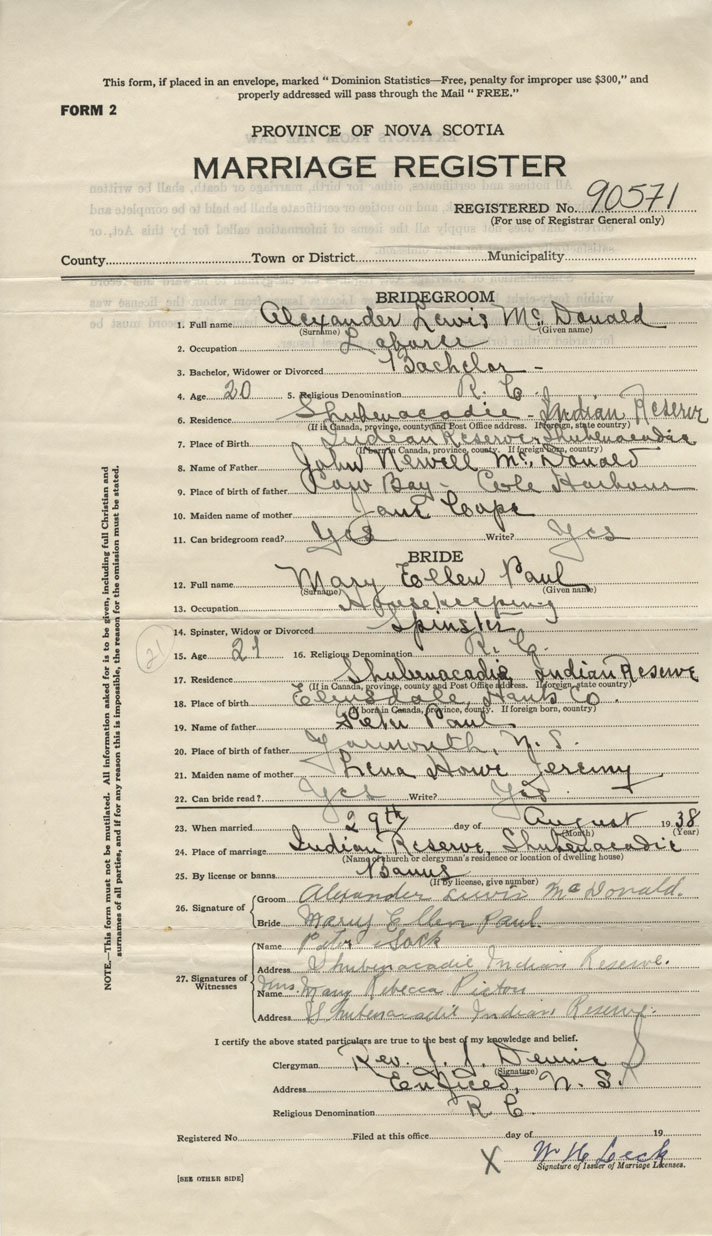 This form, if placed in an envelope, marked " Dominion Statistics—Free, penalty for improper use $300," and
properly addressed will pass through the Mail " FREE."
FORM 2
PROVINCE OF NOVA SCOTIA
MARRIAGE REGISTER
REGISTERED No. 90571
(For use of Registrar General only)
County Town or District Municipality
BRIDEGROOM
1. Full name Alexander Lewis Mc. Donald
(Surname) (Given name)
2. Occupation Laborer
3. Bachelor, Widower or Divorced Bachelor -
4. Age 20 5. Religious Denomination R. C.
6. Residence Shubenacadie - Indian Reserve
(If in Canada, province, county and Post Office address. If foreign, state country)
7. Place of Birth Indian Reserve, Shubenacadie
(If born in Canada, province, county. If foreign born, country)
8. Name of Father John Newell Mc. Donald
9. Place of birth of father Bay - Cole Harbour
10. Maiden name of mother Jane Cope
11. Can bridegroom read? Yes Write? Yes
BRIDE
12. Full name Mary Ellen Paul
(Surname) (Given name)
13. Occupation Housekeeping
14. Spinster, Widow or Divorced Spinster
15. Age 21 16. Religious Denomination R. C.
(21)
17. Residence Shubenacadie Indian Reserve
(If in Canada, province, county and Post Office address. If foreign, state country)
18. Place of birth Elmsdale, Hants Co.
(If born in Canada, province, county. If foreign born, country)
19. Name of father Peter Paul
20. Place of birth of father Yarmouth, N. S.
21. Maiden name of mother Lena Howe Jeremy
22. Can bride read? Yes Write? Yes
23. When married 29th day of August 1938
(Month) (Year)
24. Place of marriage Indian Reserve, Shubenacadie
(Name of church or clergyman's residence or location of dwelling house)
25. By license or banns Banns
(If by license, give number)
26. Signature of Groom Alexander Lewis McDonald.
Bride Mary Ellen Paul.
27. Signatures of Witnesses
Name Peter Sack
Address Shubenacadie Indian Reserve.
Name Mrs. Mary Rebecca Picton
Address Shubenacadie Indian Reserve.
I certify the above stated particulars are true to the best of my knowledge and belief.
Clergyman Rev. J. J.
(Signature)
Address Enfield, N. S.
Religious Denomination R C.
Registered No. Filed at this office day of 19
X W H Leck
Signature of Issuer of Marriage Licenses.
[SEE OTHER SIDE]
NOTE.—This form must not be mutilated. All information asked for is to be given, including full Christian and
surnames of all parties, and if for any reason this is impossible, the reason for the omission must be stated.